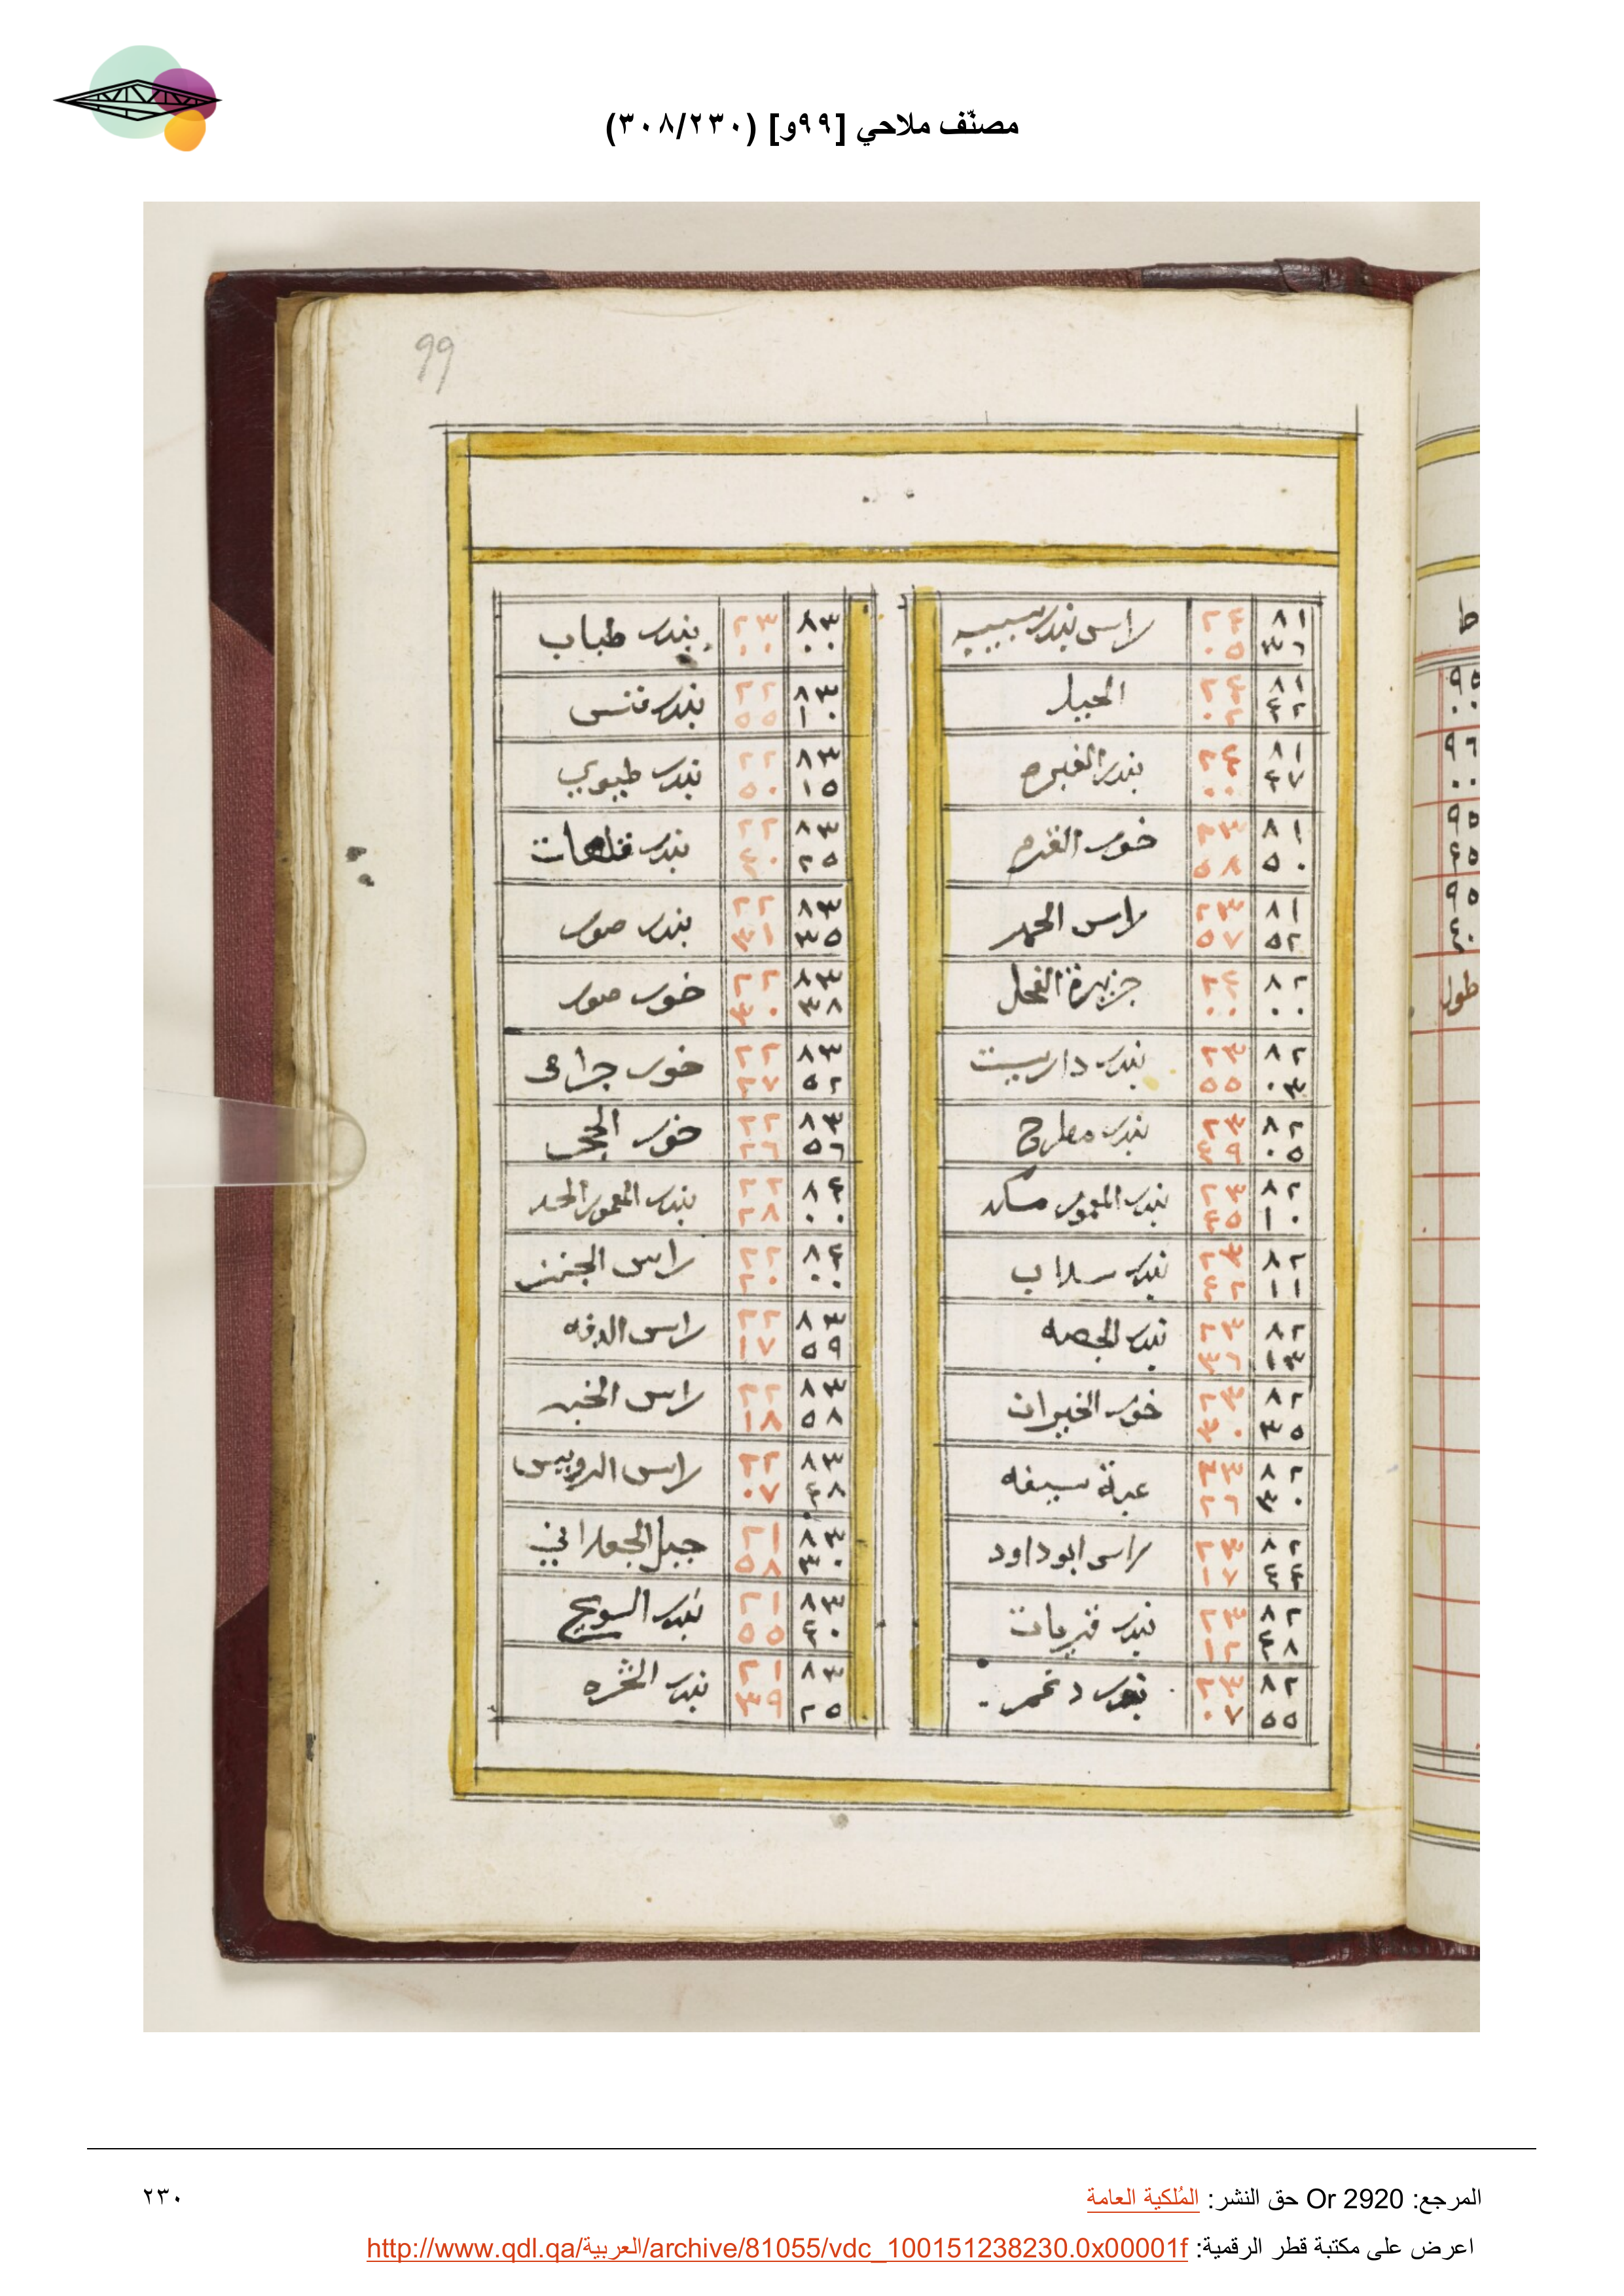 مصنّف ملاحي [٩٩و] (٣٠٨/٢٣٠)
99
٨١ ٣٦ ٢٤ ٠٥ راس بندر سيبيه
٨١ ٤٢ ٢٤ ٠٢ الحيل
٨١ ٤٧ ٢٤ ٠٠ بندر الغبره
٨١ ٥٠ ٢٣ ٥٨ خور القرم
٨١ ٥٢ ٢٣ ٥٧ راس الحمر
٨٢ ٠٠ ٢٤ ٠٠ جزيرة الفحل
٨٢ ٠٣ ٢٣ ٥٥ بندر داريست
٨٢ ٠٥ ٢٣ ٤٩ بندر مطرح
٨٢ ١٠ ٢٣ ٤٥ بندر المعمور مسكد
٨٢ ١١ ٢٣ ٤٢ بندر سداب
٨٢ ١٣ ٢٣ ٣٦ بندر الجصه
٨٢ ٣٥ ٢٣ ٣٠ خور الخيران
٨٢ ٣٠ ٢٣ ٢٦ سيفه
٨٢ ٤٤ ٢٣ ١٧ راس ابو داود
٨٢ ٤٨ ٢٣ ١٢ بندر قريات
٨٢ ٥٥ ٢٣ ٠٧ بندر دغمر
٨٣ ٠٠ ٢٣ ٠٠ بندر طباب
٨٣ ١٠ ٢٢ ٥٥ بندر فنس
٨٣ ١٥ ٢٢ ٥٠ بندر طيوي
٨٣ ٢٥ ٢٢ ٤٠ بندر قلهات
٨٣ ٣٥ ٢٢ ٣١ بندر صور
٨٣ ٣٨ ٢٢ ٣٠ خور صور
٨٣ ٥٢ ٢٢ ٢٧ خور جراعى
٨٣ ٥٦ ٢٢ ٢٦ خور الحجر
٨٤ ٠٠ ٢٢ ٢٨ بندر المعمور الحد
٨٤ ٠٠ ٢٢ ٢٠ راس الجنز
٨٣ ٥٩ ٢٢ ١٧ راس الدفه
٨٣ ٥٨ ٢٢ ١٨ راس الخبه
٨٣ ٤٨ ٢٢ ٠٧ راس الرويس
٨٣ ٣٠ ٢١ ٥٨ جبل الجعلاني
٨٣ ٤٠ ٢١ ٥٥ بندر السويح
٨٣ ٢٥ ٢١ ٣٩ بندر
ط
٩٥
٠٠
٩٦
٠٠
٩٥
٤٥
٩٥
٤٠
طول
المرجع: Or 2920 حق النشر: المُلكية العامة
٢٣٠
اعرض على مكتبة قطر الرقمية: http://www.qdl.qa/العربية/archive/81055/vdc_100151238230.0x00001f